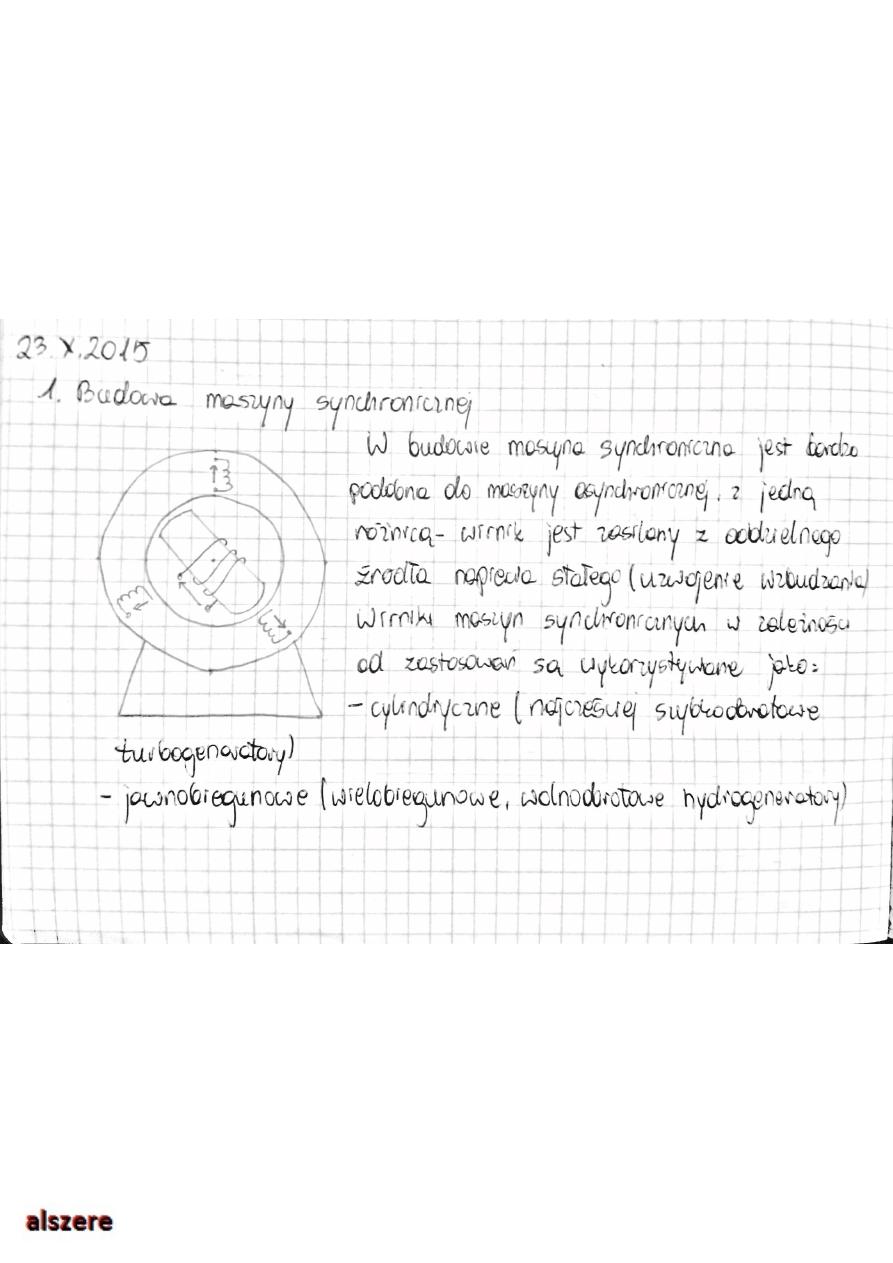 23.X.2015
1. Budowa maszyny synchronicznej
W budowie maszyna synchroniczna jest bardzo
podobna do maszyny asynchronicznej, z jedną
różnicą - wirnik jest zasilany z oddzielnego
źródła napięcia stałego (uzwojenie wzbudzania)
Wirniki maszyn synchronicznych w zależności
od zastosowań są wykorzystywane jako:
- cylindryczne (najczęściej szybkoobrotowe
turbogeneratory)
- jawnobiegunowe (wielobiegunowe, wolnoobrotowe hydrogeneratory)
alszere